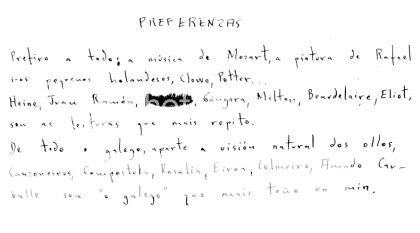 PREFERENZAS
Prefiro a todo; a música de Mozart, a pintura de Rafael
i-os pequenos holandeses, Clowe, Potter...
Heine, Juan Ramón, Góngora, Milton, Beaudelaire, Eliot,
son as leituras que mais repito.
De todo o galego, aparte a visión natural dos ollos,
Canzoneiros, Compostela, Rosalía, Eiroa, Colmeiro, Amado Car-
balle son "o galego" que mais teño en min.